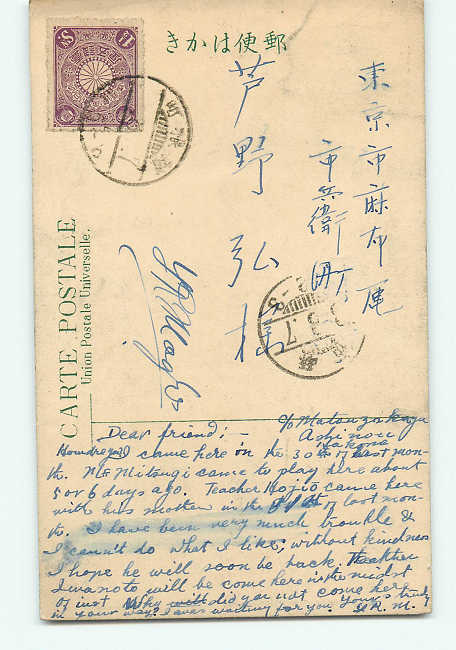 郵便はかき
東京市麻布區
市兵衛町
芦野弘
CARTE POSTALE
Union Postale Universelle.
c/o Matsuzakaya
Ashinoyu
Hakone
Dear friend; -
I came here on the 30th of last mon-
th. Mr Mitsugi came to play here about
5 or 6 days ago. Teacher Hojito came here
with his mother in the of last mon-
th. I have been very much trouble &
I can't do what I like; without kindness
I hope he will soon be back.
Iwamoto will be come here in the midst
of inst Why did you not come here
in your way? I was waiting for you. Yours truly
R. M.